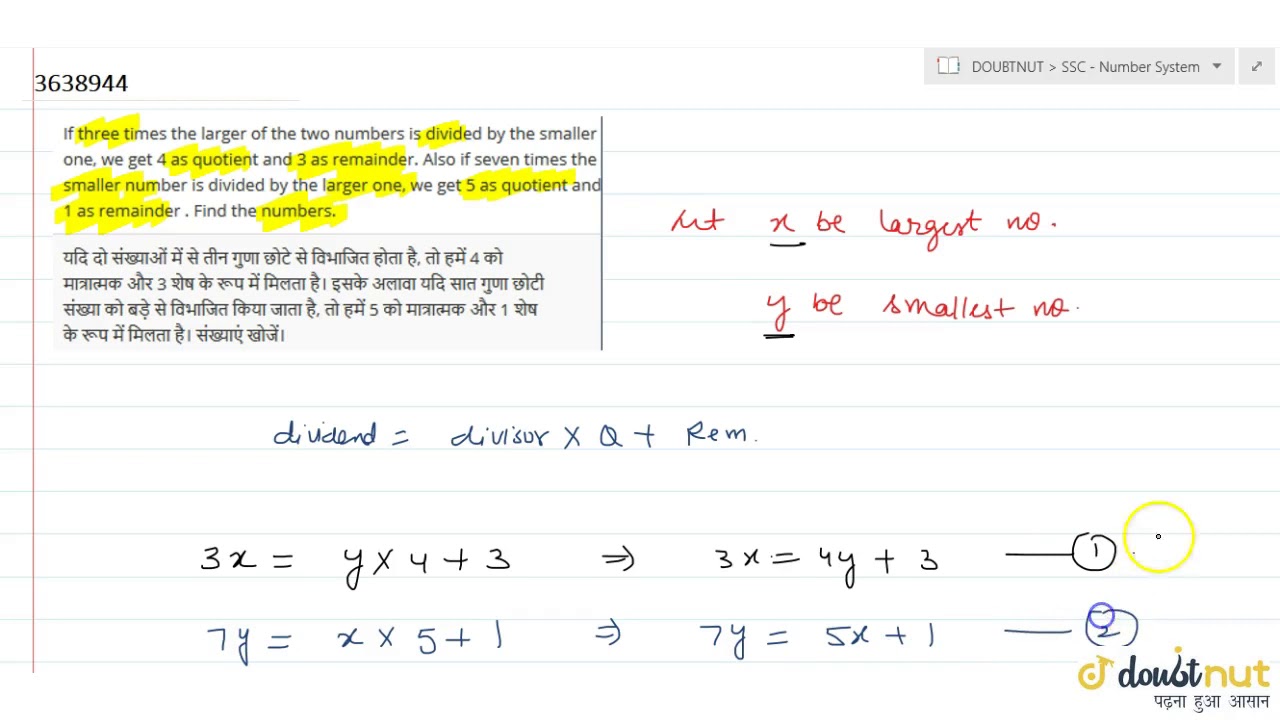 DOUBTNUT > SSC - Number System
3638944
If three times the larger of the two numbers is divided by the smaller
one, we get 4 as quotient and 3 as remainder. Also if seven times the
smaller number is divided by the larger one, we get 5 as quotient and
1 as remainder . Find the numbers.
यदि दो संख्याओं में से तीन गुणा छोटे से विभाजित होता है, तो हमें 4 को
मात्रात्मक और 3 शेष के रूप में मिलता है। इसके अलावा यदि सात गुणा छोटी
संख्या को बड़े से विभाजित किया जाता है, तो हमें 5 को मात्रात्मक और 1 शेष
के रूप में मिलता है। संख्याएं खोजें।
Let x be largest no.
y be smallest no.
dividend = divisor × Q + Rem.
3x = y × 4 + 3 ⇒ 3x = 4y + 3 — 1
7y = x × 5 + 1 ⇒ 7y = 5x + 1 — 2
doubtnut
पढ़ना हुआ आसान